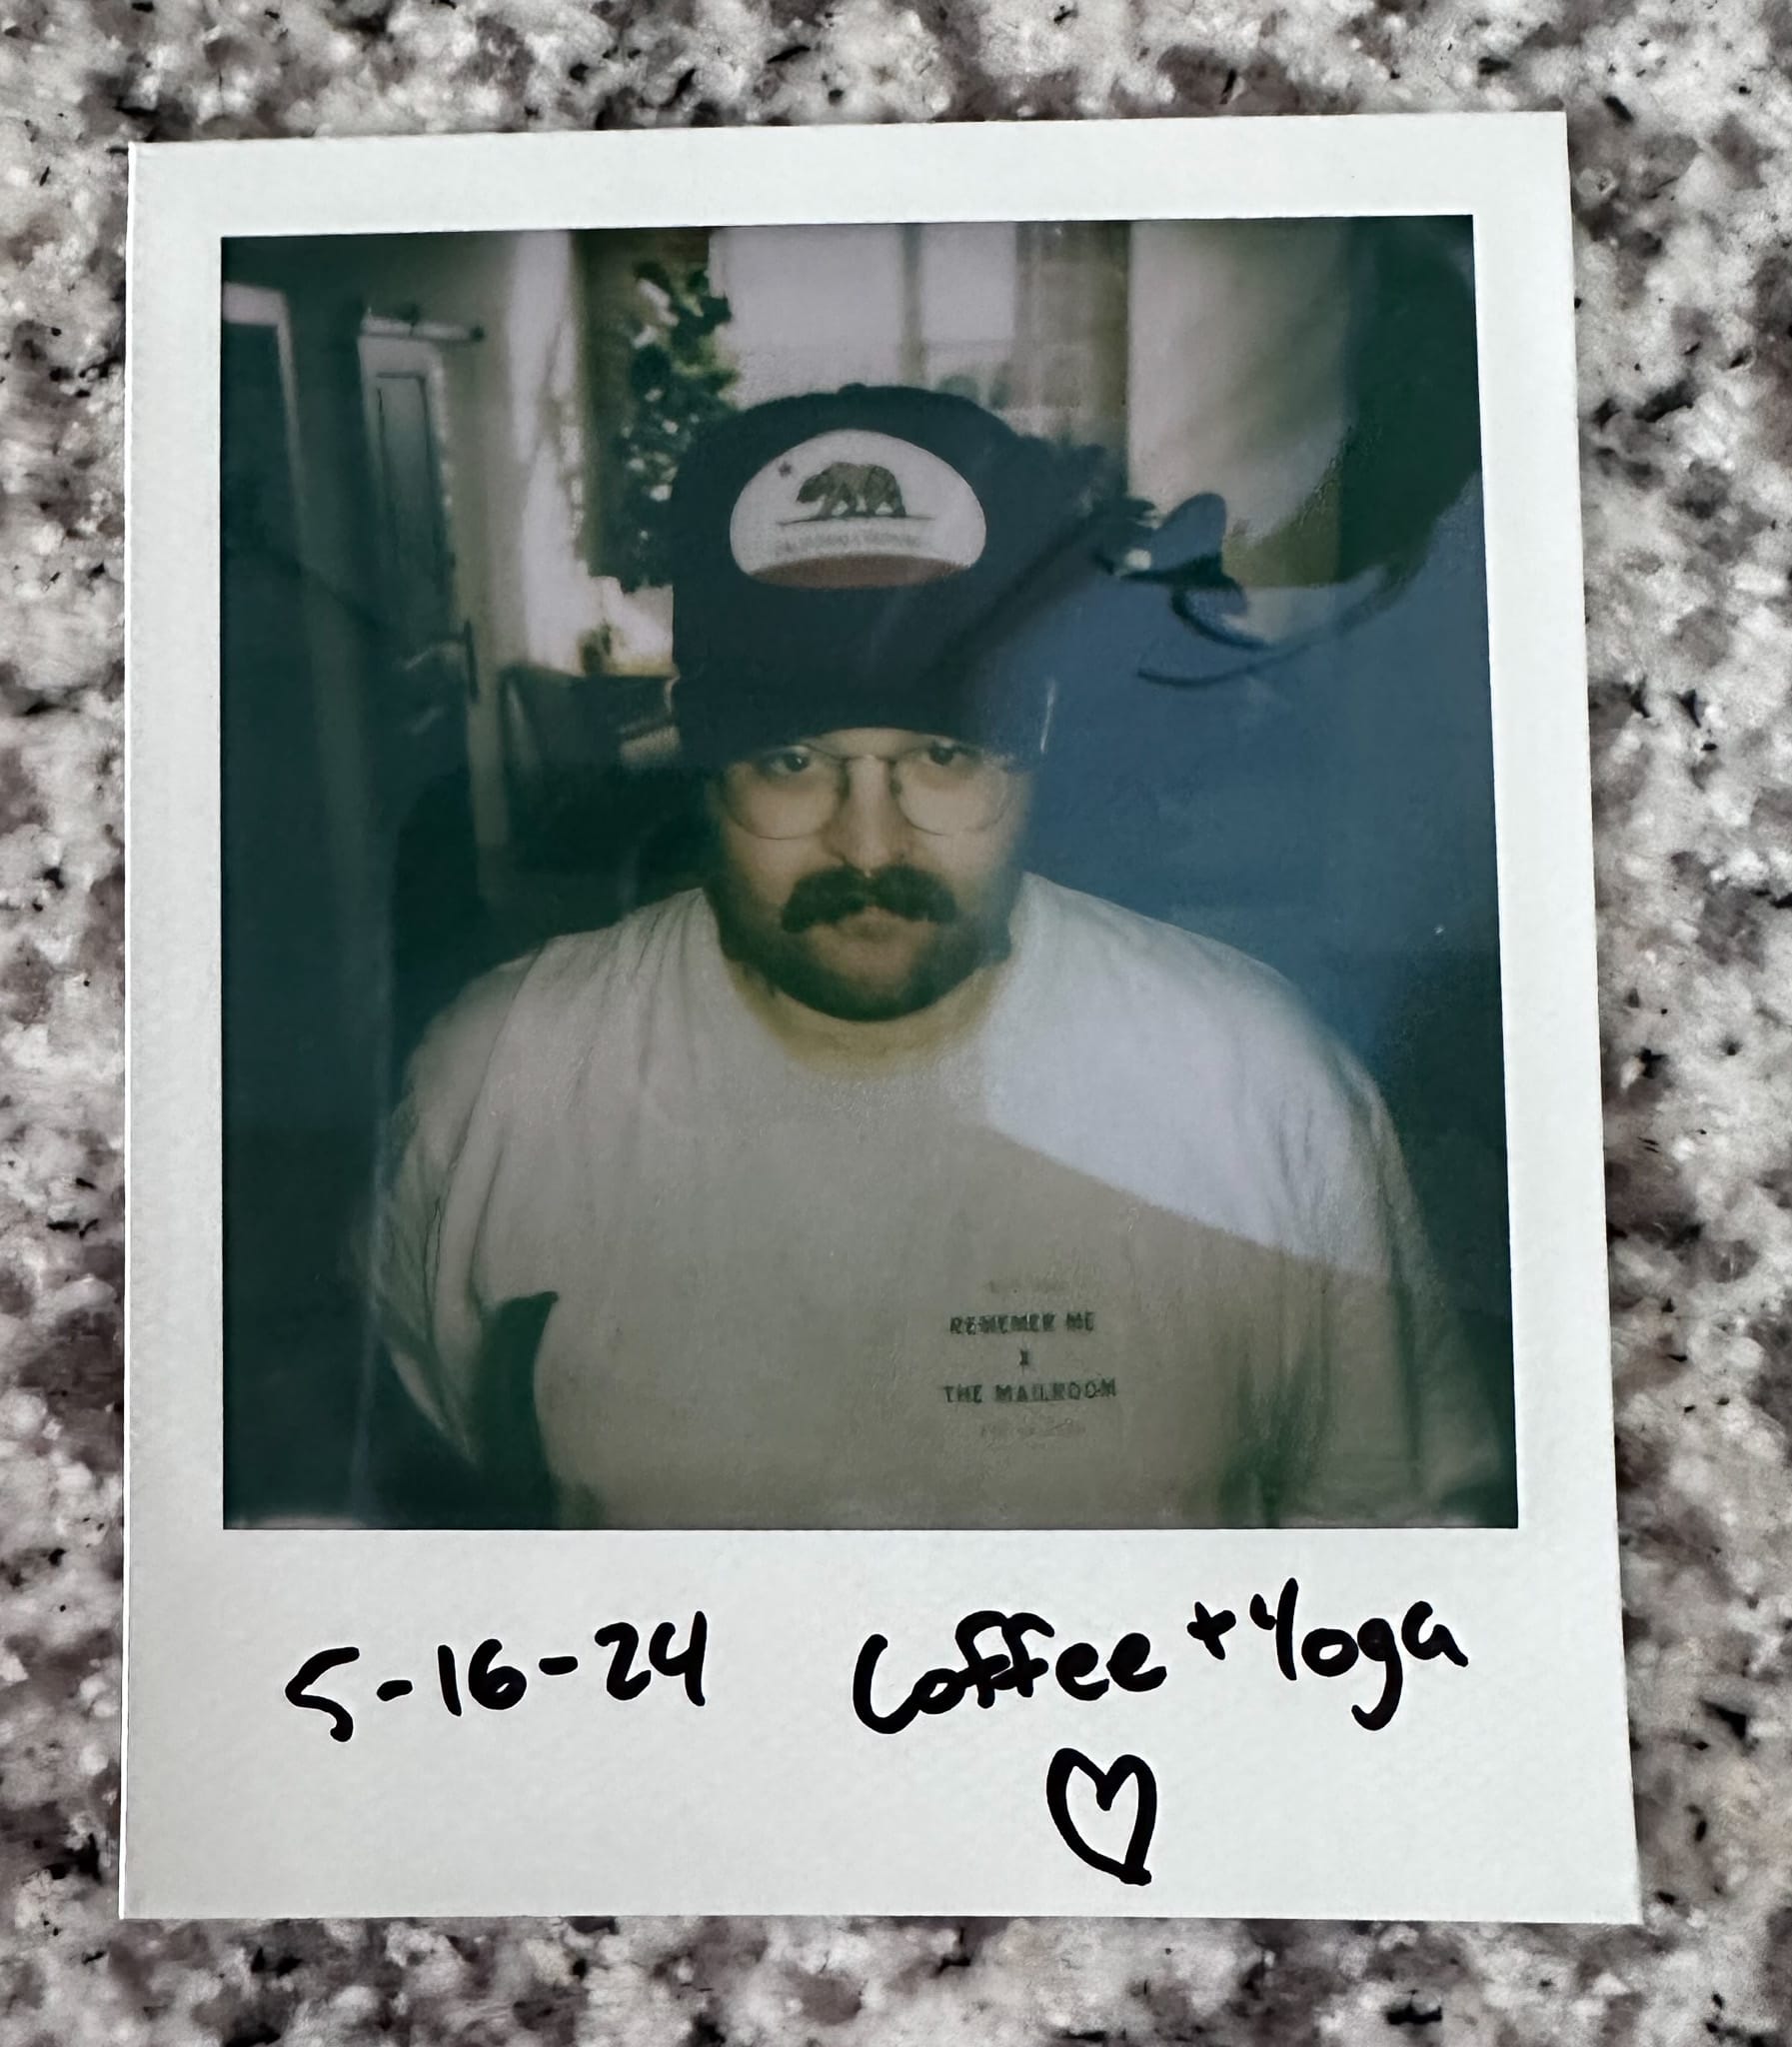 REMEMBER ME
X
THE MAILROOM
5-16-24 Coffee + Yoga